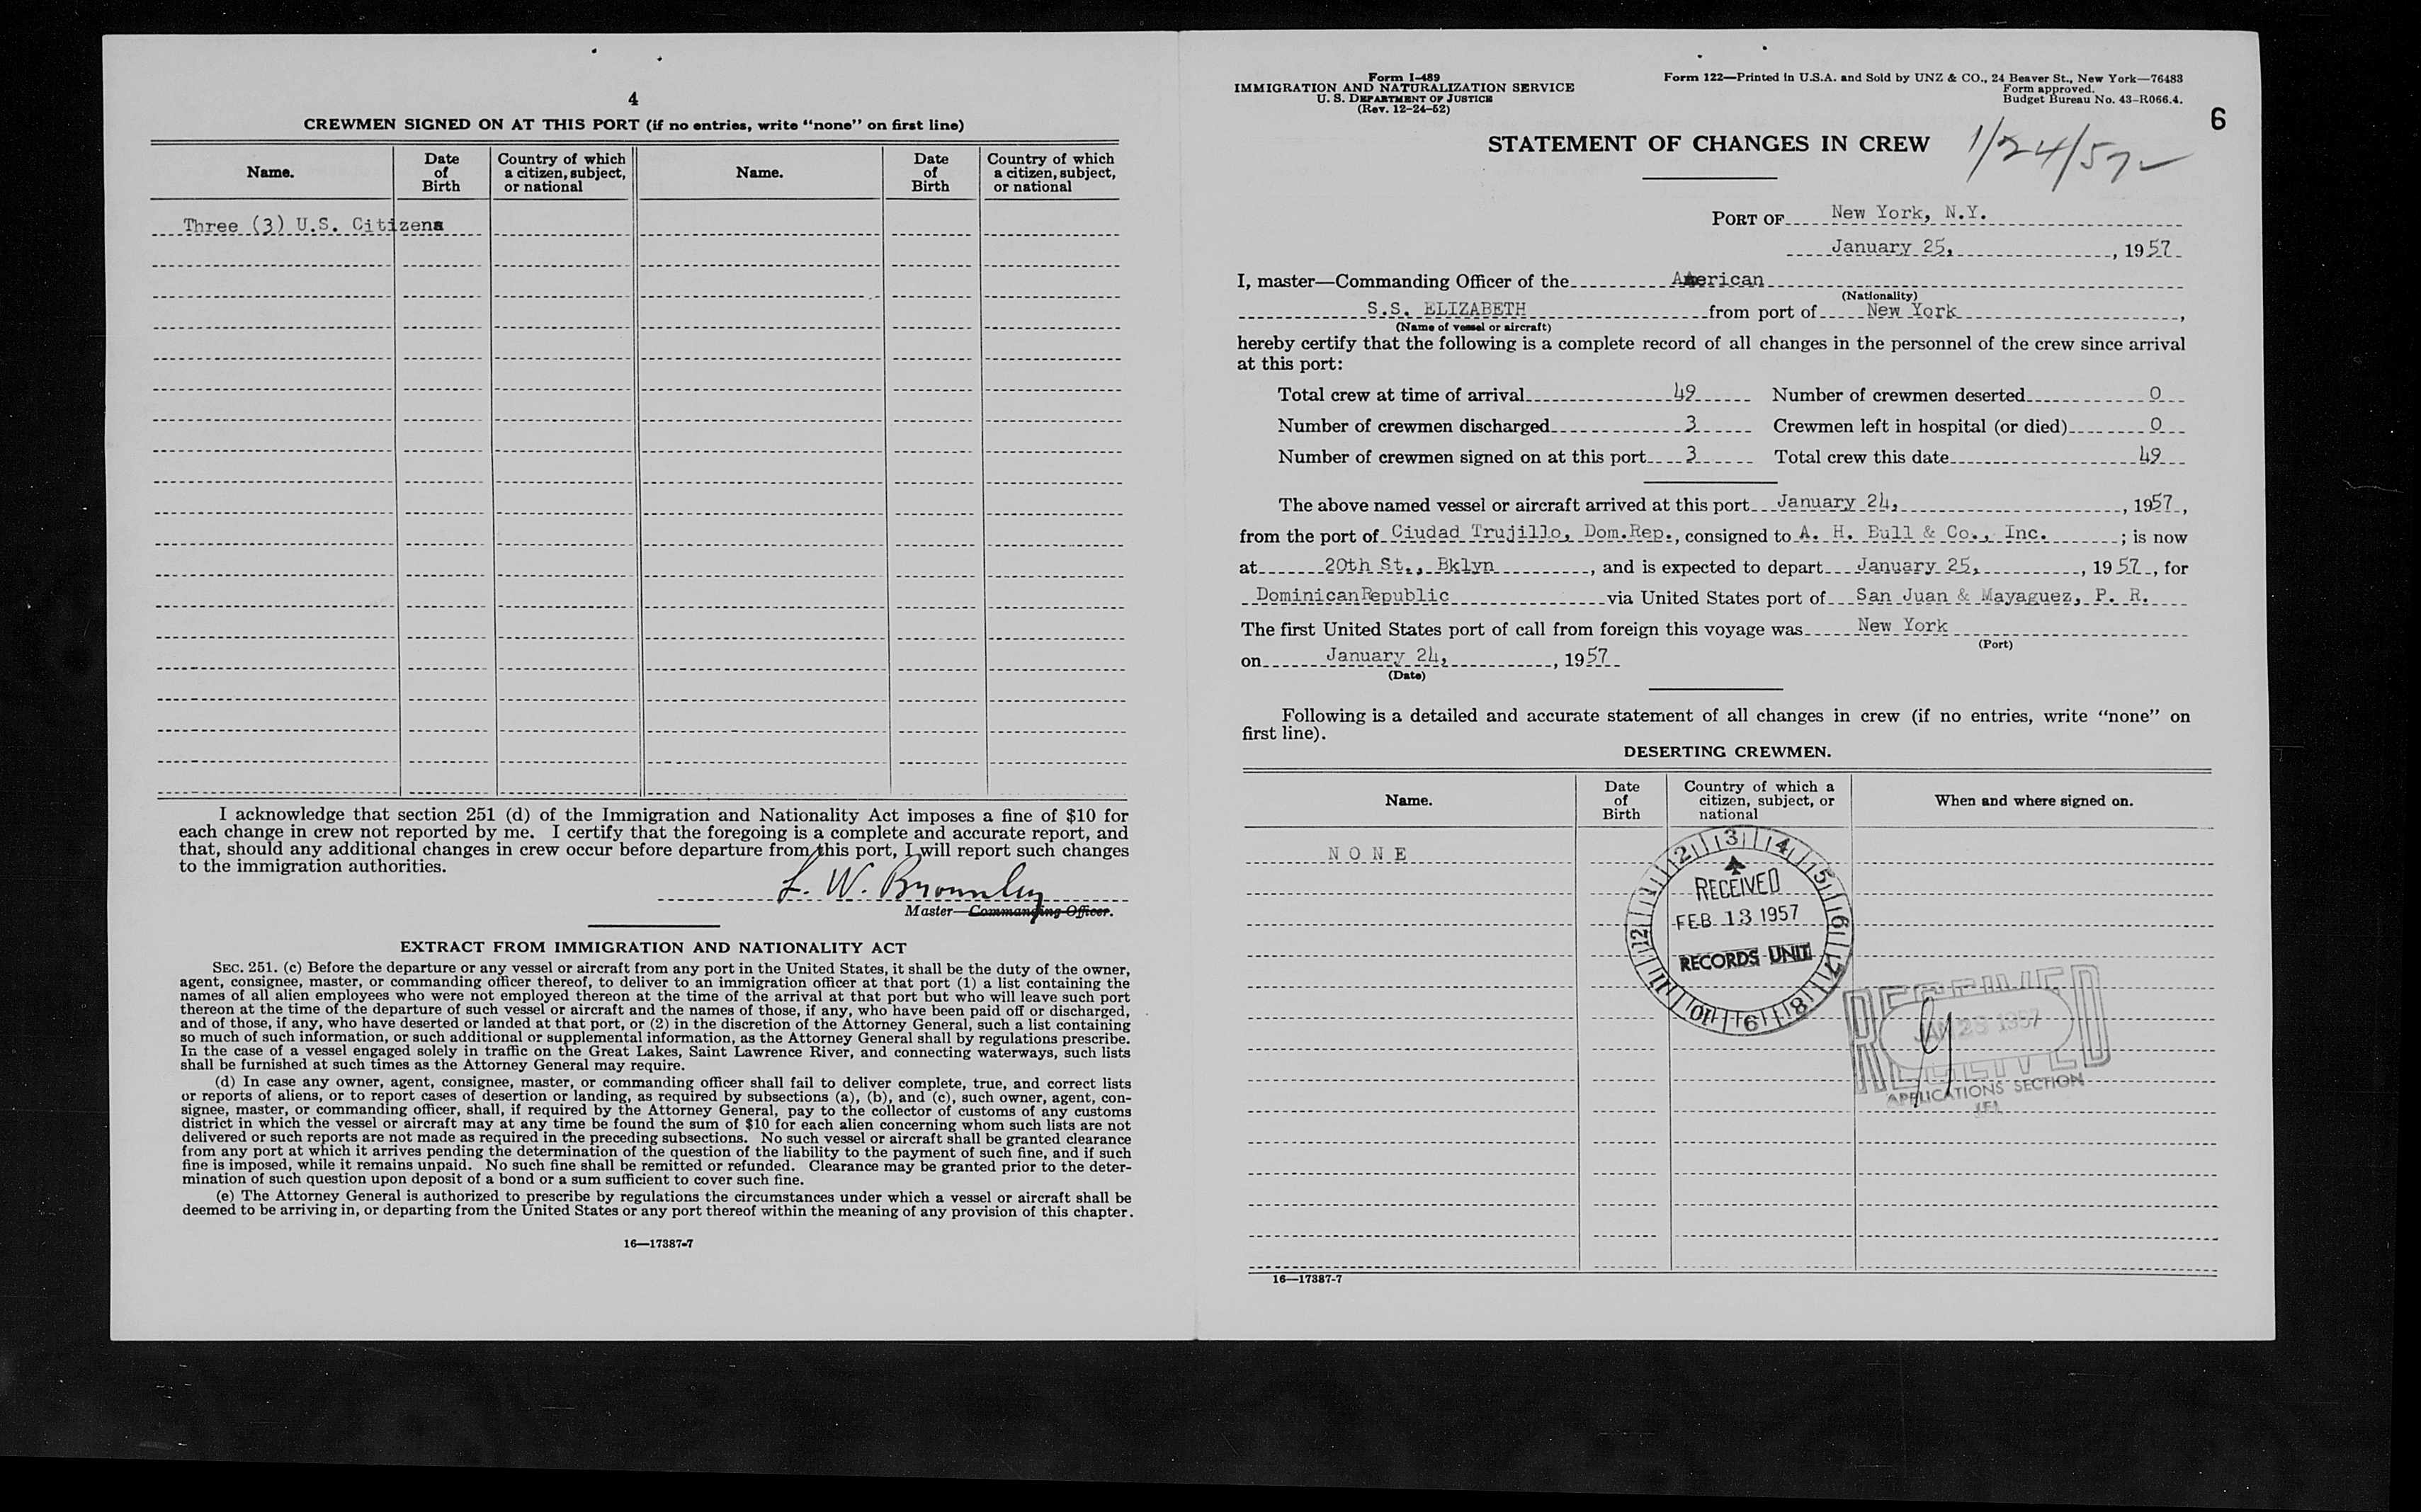 4
CREWMEN SIGNED ON AT THIS PORT (if no entries, write “none” on first line)
Name. Date of Birth Country of which a citizen, subject, or national Name. Date of Birth Country of which a citizen, subject, or national
Three (3) U.S. Citizens
I acknowledge that section 251 (d) of the Immigration and Nationality Act imposes a fine of $10 for
each change in crew not reported by me. I certify that the foregoing is a complete and accurate report, and
that, should any additional changes in crew occur before departure from this port, I will report such changes
to the immigration authorities.
L. W. Brownley
Master—Commanding Officer.
EXTRACT FROM IMMIGRATION AND NATIONALITY ACT
SEC. 251. (c) Before the departure or any vessel or aircraft from any port in the United States, it shall be the duty of the owner,
agent, consignee, master, or commanding officer thereof, to deliver to an immigration officer at that port (1) a list containing the
names of all alien employees who were not employed thereon at the time of the arrival at that port but who will leave such port
thereon at the time of the departure of such vessel or aircraft and the names of those, if any, who have been paid off or discharged,
and of those, if any, who have deserted or landed at that port, or (2) in the discretion of the Attorney General, such a list containing
so much of such information, or such additional or supplemental information, as the Attorney General shall by regulations prescribe.
In the case of a vessel engaged solely in traffic on the Great Lakes, Saint Lawrence River, and connecting waterways, such lists
shall be furnished at such times as the Attorney General may require.
(d) In case any owner, agent, consignee, master, or commanding officer shall fail to deliver complete, true, and correct lists
or reports of aliens, or to report cases of desertion or landing, as required by subsections (a), (b), and (c), such owner, agent, con-
signee, master, or commanding officer, shall, if required by the Attorney General, pay to the collector of customs of any customs
district in which the vessel or aircraft may at any time be found the sum of $10 for each alien concerning whom such lists are not
delivered or such reports are not made as required in the preceding subsections. No such vessel or aircraft shall be granted clearance
from any port at which it arrives pending the determination of the question of the liability to the payment of such fine, and if such
fine is imposed, while it remains unpaid. No such fine shall be remitted or refunded. Clearance may be granted prior to the deter-
mination of such question upon deposit of a bond or a sum sufficient to cover such fine.
(e) The Attorney General is authorized to prescribe by regulations the circumstances under which a vessel or aircraft shall be
deemed to be arriving in, or departing from the United States or any port thereof within the meaning of any provision of this chapter.
16—17387-7
Form I-489
IMMIGRATION AND NATURALIZATION SERVICE
U. S. DEPARTMENT OF JUSTICE
(Rev. 12-24-52)
Form 122—Printed in U.S.A. and Sold by UNZ & CO., 24 Beaver St., New York—76483
Form approved.
Budget Bureau No. 43-R066.4.
6
STATEMENT OF CHANGES IN CREW
1/24/57
PORT OF New York, N.Y.
January 25, , 1957
I, master—Commanding Officer of the American
(Nationality)
S.S. ELIZABETH from port of New York ,
(Name of vessel or aircraft)
hereby certify that the following is a complete record of all changes in the personnel of the crew since arrival
at this port:
Total crew at time of arrival 49 Number of crewmen deserted 0
Number of crewmen discharged 3 Crewmen left in hospital (or died) 0
Number of crewmen signed on at this port 3 Total crew this date 49
The above named vessel or aircraft arrived at this port January 24, , 1957 ,
from the port of Ciudad Trujillo, Dom.Rep., consigned to A. H. Bull & Co., Inc. ; is now
at 20th St., Bklyn , and is expected to depart January 25, , 1957 , for
DominicanRepublic via United States port of San Juan & Mayaguez, P. R.
The first United States port of call from foreign this voyage was New York
(Port)
on January 24, , 1957
(Date)
Following is a detailed and accurate statement of all changes in crew (if no entries, write “none” on
first line).
DESERTING CREWMEN.
Name. Date of Birth Country of which a citizen, subject, or national When and where signed on.
N O N E
1 2 3 4 5 6 7 8 9 10 11 12
RECEIVED
FEB 13 1957
RECORDS UNIT
RECEIVED
JAN 28 1957
RECEIVED
APPLICATIONS SECTION
16—17387-7